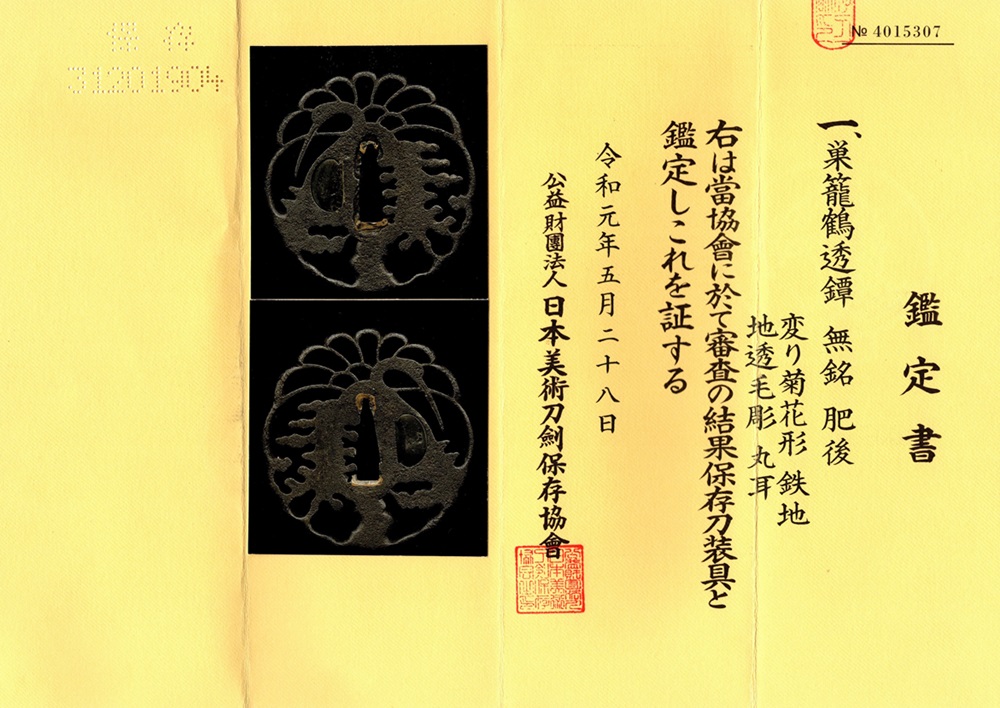 № 4015307
鑑定書
一、巣籠鶴透鐔 無銘 肥後
変り菊花形 鉄地
地透毛彫 丸耳
右は當協會に於て審査の結果保存刀装具と
鑑定しこれを証する
令和元年五月二十八日
公益財團法人 日本美術刀劍保存協會
保存
31201904